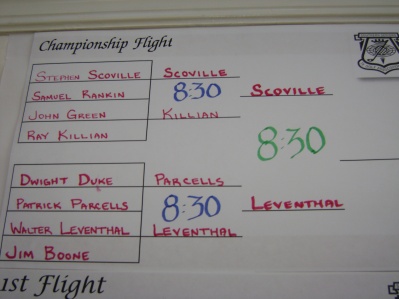 Championship Flight
STEPHEN SCOVILLE SCOVILLE
SAMUEL RANKIN 8:30 SCOVILLE
JOHN GREEN KILLIAN
RAY KILLIAN 8:30
DWIGHT DUKE PARCELLS
PATRICK PARCELLS 8:30 LEVENTHAL
WALTER LEVENTHAL LEVENTHAL
JIM BOONE
1st Flight